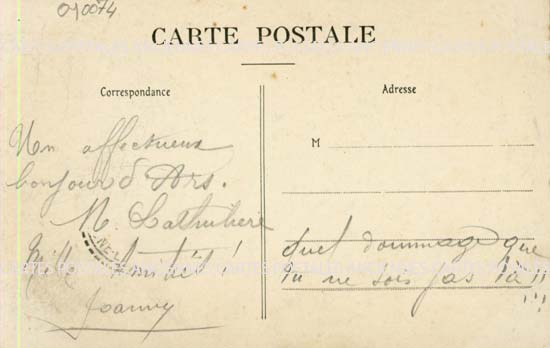 090074
CARTE POSTALE
Correspondance
Adresse
M
Un affectueux
bonjour d'Ars.
M. Lathuilière
Mille Amitiés !
Joanny
Quel dommage que
tu ne sois pas là !!
!!!